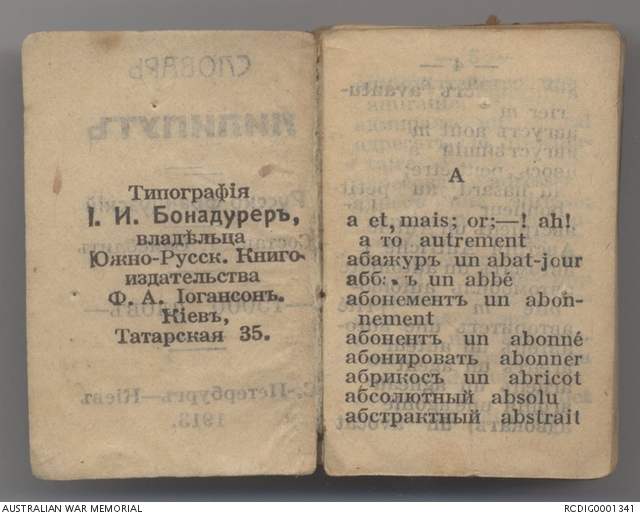 Типографія
І. И. Бонадуреръ,
владѣльца
Южно-Русск. Книго-
издательства
Ф. А. Іогансонъ.
Кіевъ,
Татарская 35.
А
а et, mais; or;—! ah!
а то autrement
абажуръ un abat-jour
un abbé
абонементъ un abon-
nement
абонентъ un abonné
абонировать abonner
абрикосъ un abricot
абсолютный absolu
абстрактный abstrait
AUSTRALIAN WAR MEMORIAL
RCDIG0001341